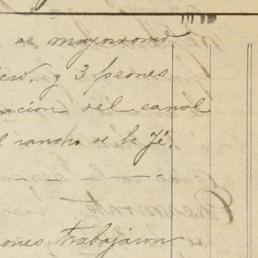 de mayordomo
y 3 peones
ación del canal
l rancho de la Fé,
ones trabajaron